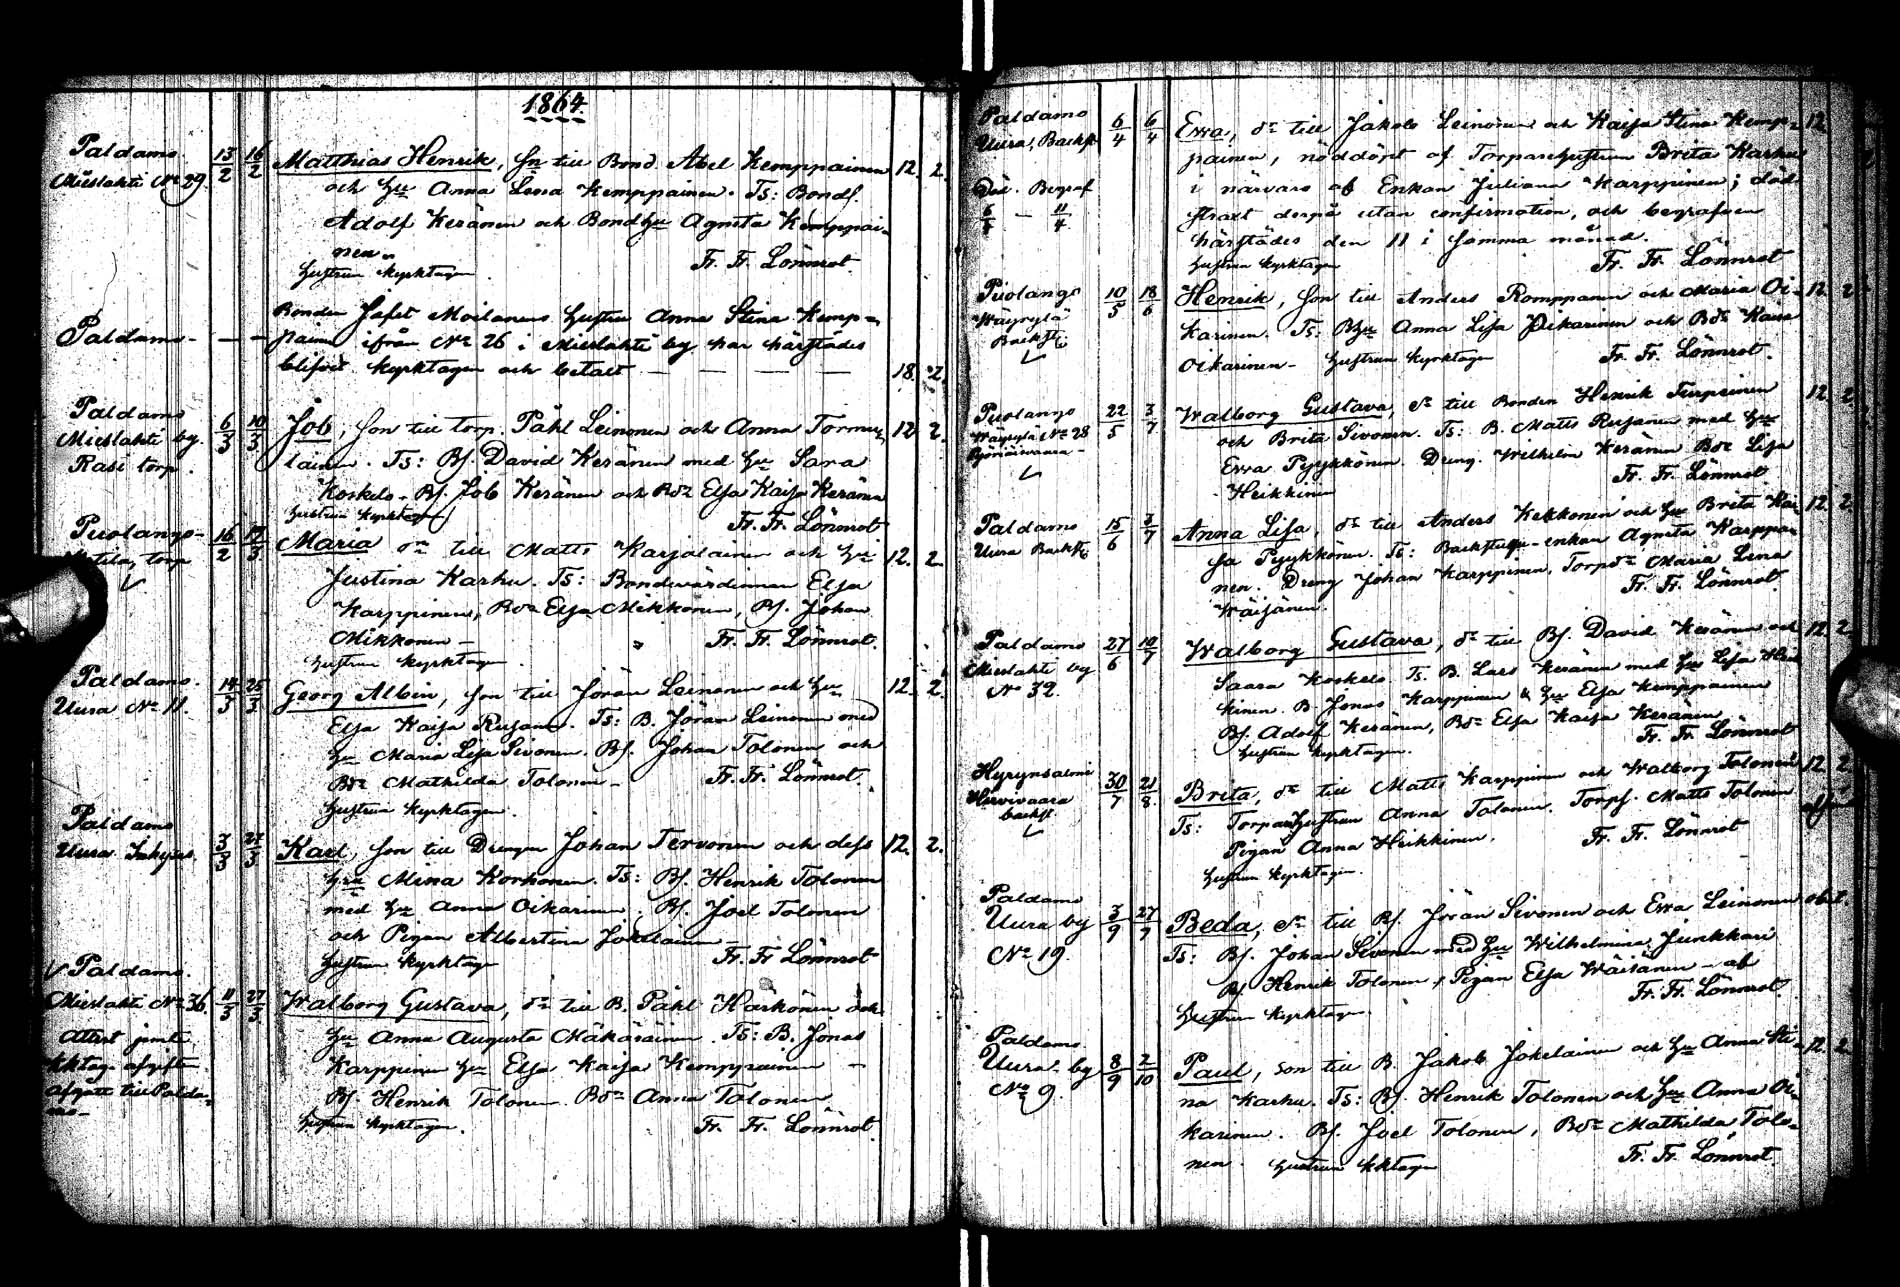 1864.
Paldamo.
Mieslahti No 29.
13/2 16/2
Matthias Henrik, son till Bond. Abel Kemppainen 12. 2.
och Hu Anna Lena Kemppainen. Ts: Bondf.
Adolf Keränen och BondHu Agneta Kemppai-
nen.
Fr. Fr. Lönnrot.
Hustrun kyrktagen
Bonden Jafet Moilanens hustru Anna Stina Kemp-
Paldamo - — — painen ifrån No 26 i Mieslahti by har härstädes
blifvit kyrktagen och betalt — — — — 18. 2.
Paldamo
Mieslahti by.
Rasi torp.
6/3 10/3
Job, son till torp. Påhl Leinonen och Anna Tormu- 12 2.
lainen. Ts: Bf. David Keränen med Hu Sara
Koskelo - Bf. Job Keränen och Bdr Elsa Kaisa Keränen
Hustrun kyrktagen
Fr. Fr. Lönnrot
Puolango-
torp
16/2 17/3
Maria dr till Matts Karjalainen och Hu 12. 2
Justina Karhu. Ts: Bondevärdinnan Elsa
Karppinen, Bdr Elsa Mikkonen, Bf. Johan
Mikkonen -
Fr. Fr. Lönnrot.
Hustrun kyrktagen
Paldamo.
Uura No 11.
14/3 25/3
Georg Albin, son till Jöran Leinonen och Hu 12. 2.
Elsa Kaisa Rusanen. Ts: B. Jöran Leinonen med
Hu Maria Lisa Sivonen. Bf. Johan Tolonen och
Bdr Mathilda Tolonen -
Fr. Fr. Lönnrot.
Hustrun kyrktagen.
Paldamo
Uura
3/3 27/3
Karl, son till Drengen Johan Tervonen och dess 12. 2.
Hu Mina Korhonen. Ts: Bf. Henrik Tolonen
med Hu Anna Oikarinen, Bf. Joel Tolonen
och Pigan Albertina Jokelainen -
Hustrun kyrktag
Fr. Fr. Lönnrot
Paldamo.
Mieslahti No 36.
11/3 27/3
Walborg Gustava, dr till B. Påhl Härkönen och
Attest jemte Hu Anna Augusta Mäkäräinen. Ts: B. Jonas
kktag. afgift Karppinen Hu Elsa Kaisa Kemppainen -
afgått till Palda- Bf. Henrik Tolonen. Bdr Anna Tolonen
mo-
Hustrun kyrktagen.
Fr. Fr. Lönnrot.
Paldamo
Uura, Backst
6/4 6/4
Ewa, dr till Jakob Leinonen och Kaisa Stina Kemp- 12
painen, nöddöpt af TorpareHustrun Brita Karhu
Död. Begraf i närvaro af Enkan Juliana Karppinen; död
6/4 — 11/4 straxt derpå utan confirmation, och begrafven
härstädes den 11 i samma månad.
Hustrun kyrktagen
Fr. Fr. Lönnrot
Puolango
Wäyrylä
Backst.
10/5 18/6
Henrik, son till Anders Romppanen och Maria Oi- 12. 2
karinen. Ts: BHu Anna Lisa Oikarinen och Bdr Kaisa
Oikarinen - Hustrun kyrktagen
Fr. Fr. Lönnrot.
Puolango
Wäyrylä No 28
22/5 3/7
Walborg Gustava, dr till Bonden Henrik Turpeinen 12 2.
och Brita Sivonen. Ts: B. Matts Rusanen med Hu
Ewa Pyykkönen. Dreng. Wilhelm Keränen Bdr Lisa
Heikkinen
Fr. Fr. Lönnrot
Paldamo
Uura Backst.
15/6 3/7
Anna Lisa, dr till Anders Kekkonen och Hu Brita Kai- 12. 2
sa Pyykkönen. Ts: Backstugu-enkan Agneta Karppi-
nen. Dreng Johan Karppinen, Torpdr Maria Lena
Wäisänen.
Fr. Fr. Lönnrot.
Paldamo
Mieslahti by
No 32.
27/6 10/7
Walborg Gustava, dr till Bf. David Keränen och 12. 2.
Saara Koskelo. Ts. B. Lars Keränen med Hu Lisa Heik-
kinen. B. Jonas Karppinen & Hu Elsa Kemppainen
Bf. Adolf Keränen, Bdr Elsa Kaisa Keränen
Hustrun kyrktagen.
Fr. Fr. Lönnrot
Hyrynsalmi
Hirvivaara
backst.
30/7 21/8
Brita, dr till Matts Karppinen och Walborg Tolonen 12 2
Ts: TorpareHustrun Anna Tolonen. Torpf. Matts Tolonen
Pigan Anna Heikkinen.
Fr. Fr. Lönnrot
Hustrun kyrktagen.
Paldamo
Uura by
No 19.
3/9 27/7
Beda, dr till Bf. Jöran Sivonen och Ewa Leinonen
Ts: Bf. Johan Sivonen med Hu Wilhelmina Junkkari
Bf Henrik Tolonen, Pigan Elsa Wäisänen -
Fr. Fr. Lönnrot.
Hustrun kyrktagen.
Paldamo.
Uura by
No 9.
8/9 2/10
Paul, son till B. Jakob Jokelainen och Hu Anna Sti- 12. 2
na Karhu. Ts: Bf. Henrik Tolonen och Hu Anna Oi-
karinen. Bf. Joel Tolonen, Bdr Mathilda Tolo-
nen. Hustrun kktagen
Fr. Fr. Lönnrot.